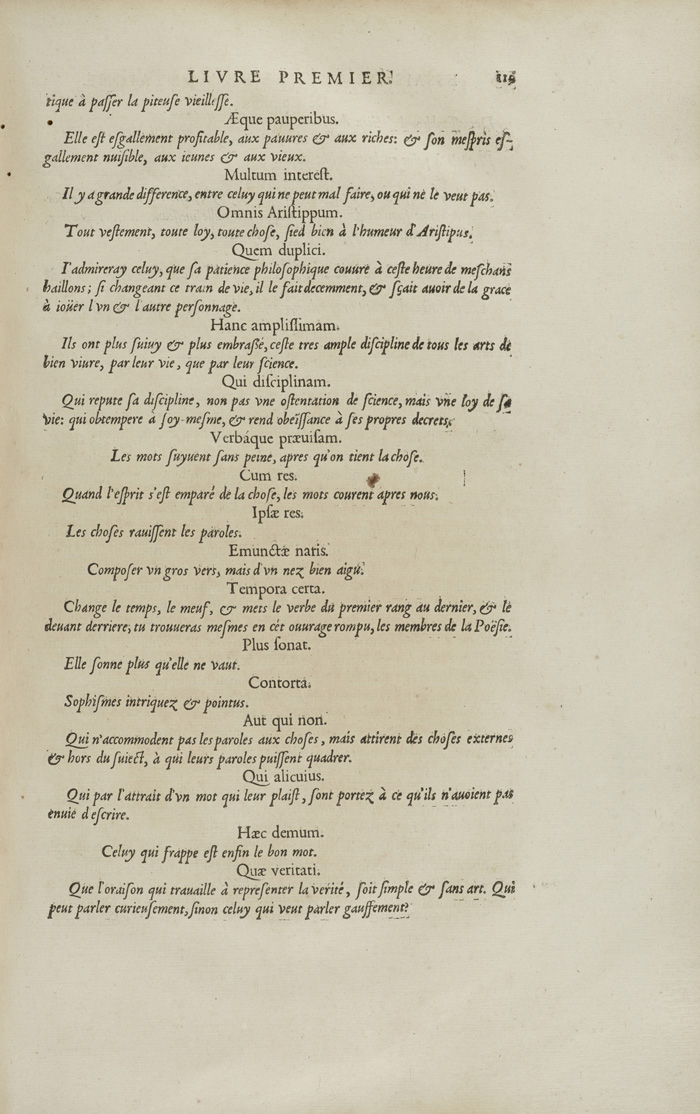 LIVRE PREMIER.
tique à paſſer la piteuſe vieilleſſe.
Æque pauperibus.
Elle eſt eſgallement profitable, aux pauures & aux riches: & ſon meſpris eſ-
gallement nuiſible, aux ieunes & aux vieux.
Multum intereſt.
Il y a grande difference, entre celuy qui ne peut mal faire, ou qui ne le veut pas.
Omnis Ariſtippum.
Tout veſtement, toute loy, toute choſe, ſied bien à l'humeur d'Ariſtipus.
Quem duplici.
I'admireray celuy, que ſa patience philoſophique couure à ceſte heure de meſchans
haillons; ſi changeant ce train de vie, il le fait decemment, & ſçait auoir de la grace
à ioüer l'vn & l'autre perſonnage.
Hanc ampliſſimam.
Ils ont plus ſuiuy & plus embraßé, ceſte tres ample diſcipline de tous les arts de
bien viure, par leur vie, que par leur ſcience.
Qui diſciplinam.
Qui repute ſa diſcipline, non pas vne oſtentation de ſcience, mais vne loy de ſa
vie: qui obtempere à ſoy-meſme, & rend obeïſſance à ſes propres decrets.
Verbáque præuiſam.
Les mots ſuyuent ſans peine, apres qu'on tient la choſe.
Cum res.
Quand l'eſprit s'eſt emparé de la choſe, les mots courent apres nous.
Ipſæ res.
Les choſes rauiſſent les paroles.
Emunctæ naris.
Compoſer vn gros vers, mais d'vn nez bien aigu.
Tempora certa.
Change le temps, le meuf, & mets le verbe du premier rang au dernier, & le
deuant derriere, tu trouueras meſmes en cét ouurage rompu, les membres de la Poëſie.
Plus ſonat.
Elle ſonne plus qu'elle ne vaut.
Contorta.
Sophiſmes intriquez & pointus.
Aut qui non.
Qui n'accommodent pas les paroles aux choſes, mais attirent des choſes externes
& hors du ſuiect, à qui leurs paroles puiſſent quadrer.
Qui alicuius.
Qui par l'attrait d'vn mot qui leur plaiſt, ſont portez à ce qu'ils n'auoient pas
enuie d'eſcrire.
Hæc demum.
Celuy qui frappe eſt enfin le bon mot.
Quæ veritati.
Que l'oraiſon qui trauaille à repreſenter la verité, ſoit ſimple & ſans art. Qui
peut parler curieuſement, ſinon celuy qui veut parler gauffement?